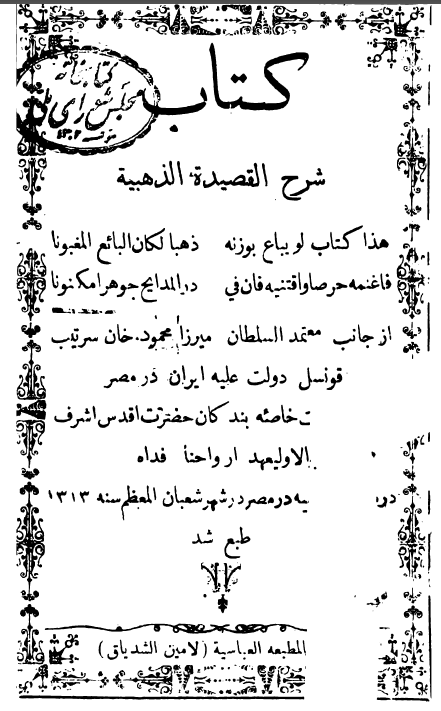 كتاب
كتابخانه
مجلس شورای ملی
شرح القصيدة الذهبية
هذا كتاب لو يباع بوزنه ذهبا لكان البائع المغبونا
فاغنمه حرصا واقتنيه فان في در المدايح جوهرا مكنونا
از جانب معتمد السلطان ميرزا محمود خان سرتيب
قونسل دولت عليه ايران در مصر
ت خاصه بندكان حضرت اقدس اشرف
الاوليعهد ارواحنا فداه
در يه در مصر در شهر شعبان المعظم سنه ١٣١٣
طبع شد
المطبعه العباسية (لامين الشدياق)